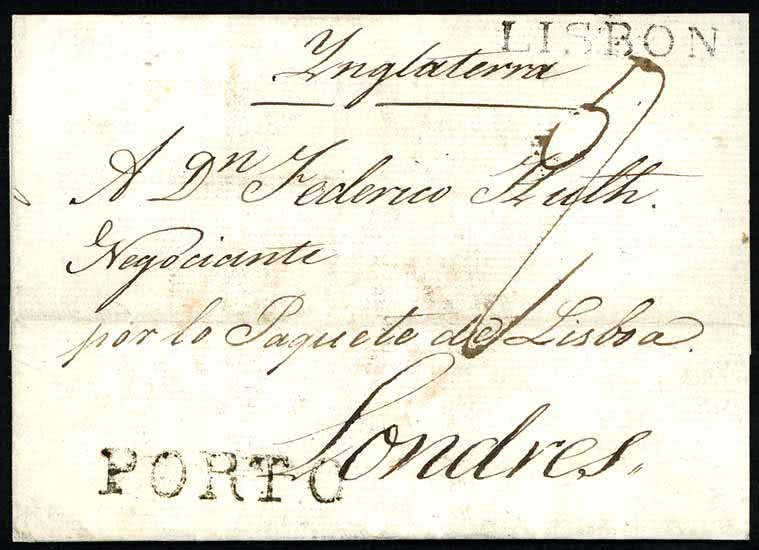 LISBON
Ynglaterra
A Dn Federico Huth.
Negociante
por lo Paquete de Lisboa.
Londres.
PORTO